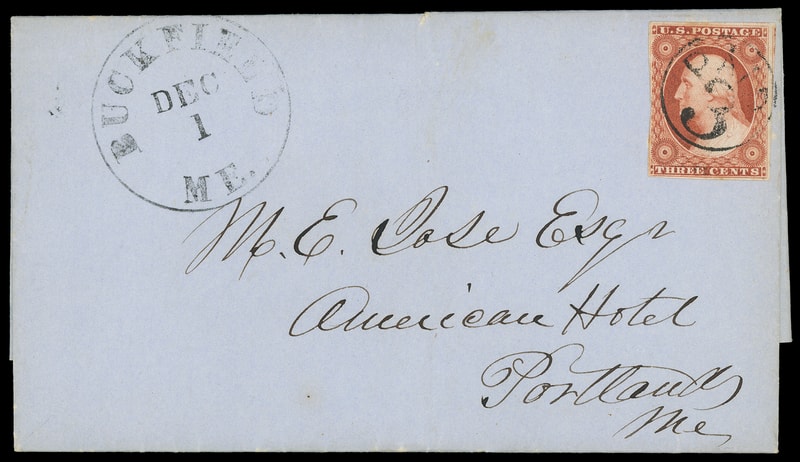 BUCKFIELD
DEC
1
ME.
U.S. POSTAGE
THREE CENTS
PAID
3
M. E. Jose Esqr
American Hotel
Portland
Me